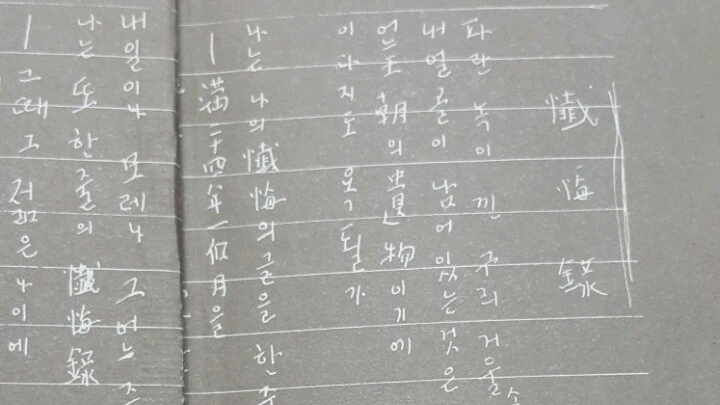 懺悔錄
파란 녹이 낀 구리 거울 속
내 얼골이 남어 있는 것은
어느 王朝의 遺物이기에
이다지도 욕될가
나는 나의 懺悔의 글을 한
— 滿二十四年一個月을
내일이나 모레나 그 어느
나는 또 한 줄의 懺悔錄
— 그때 그 젊은 나이에